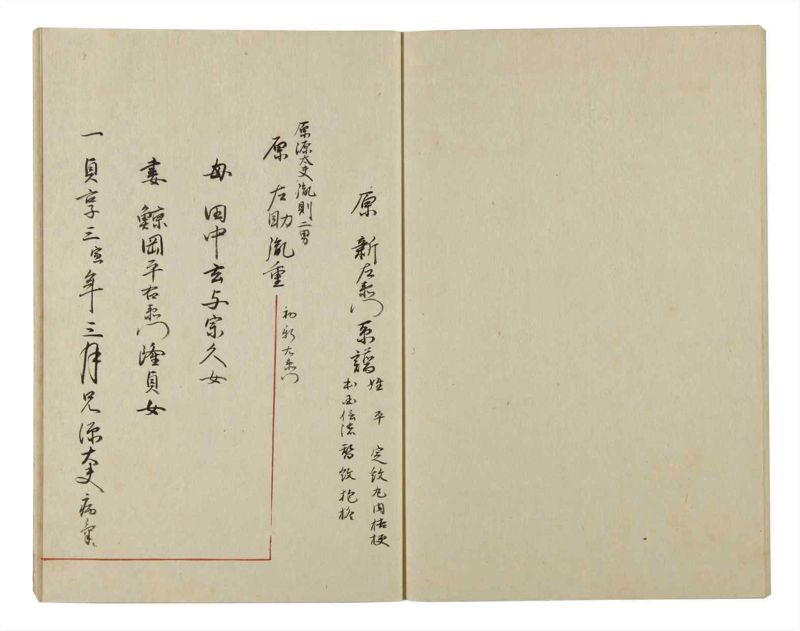 原 新左衛門系譜
姓 平 定紋丸内桔梗
本国信濃 替紋抱柊
原源太夫胤則二男
原 左助胤重
初新左衛門
母 田中玄与宗久女
妻 鯨岡平右衛門隆貞女
一貞享三寅年三月兄源太夫病気